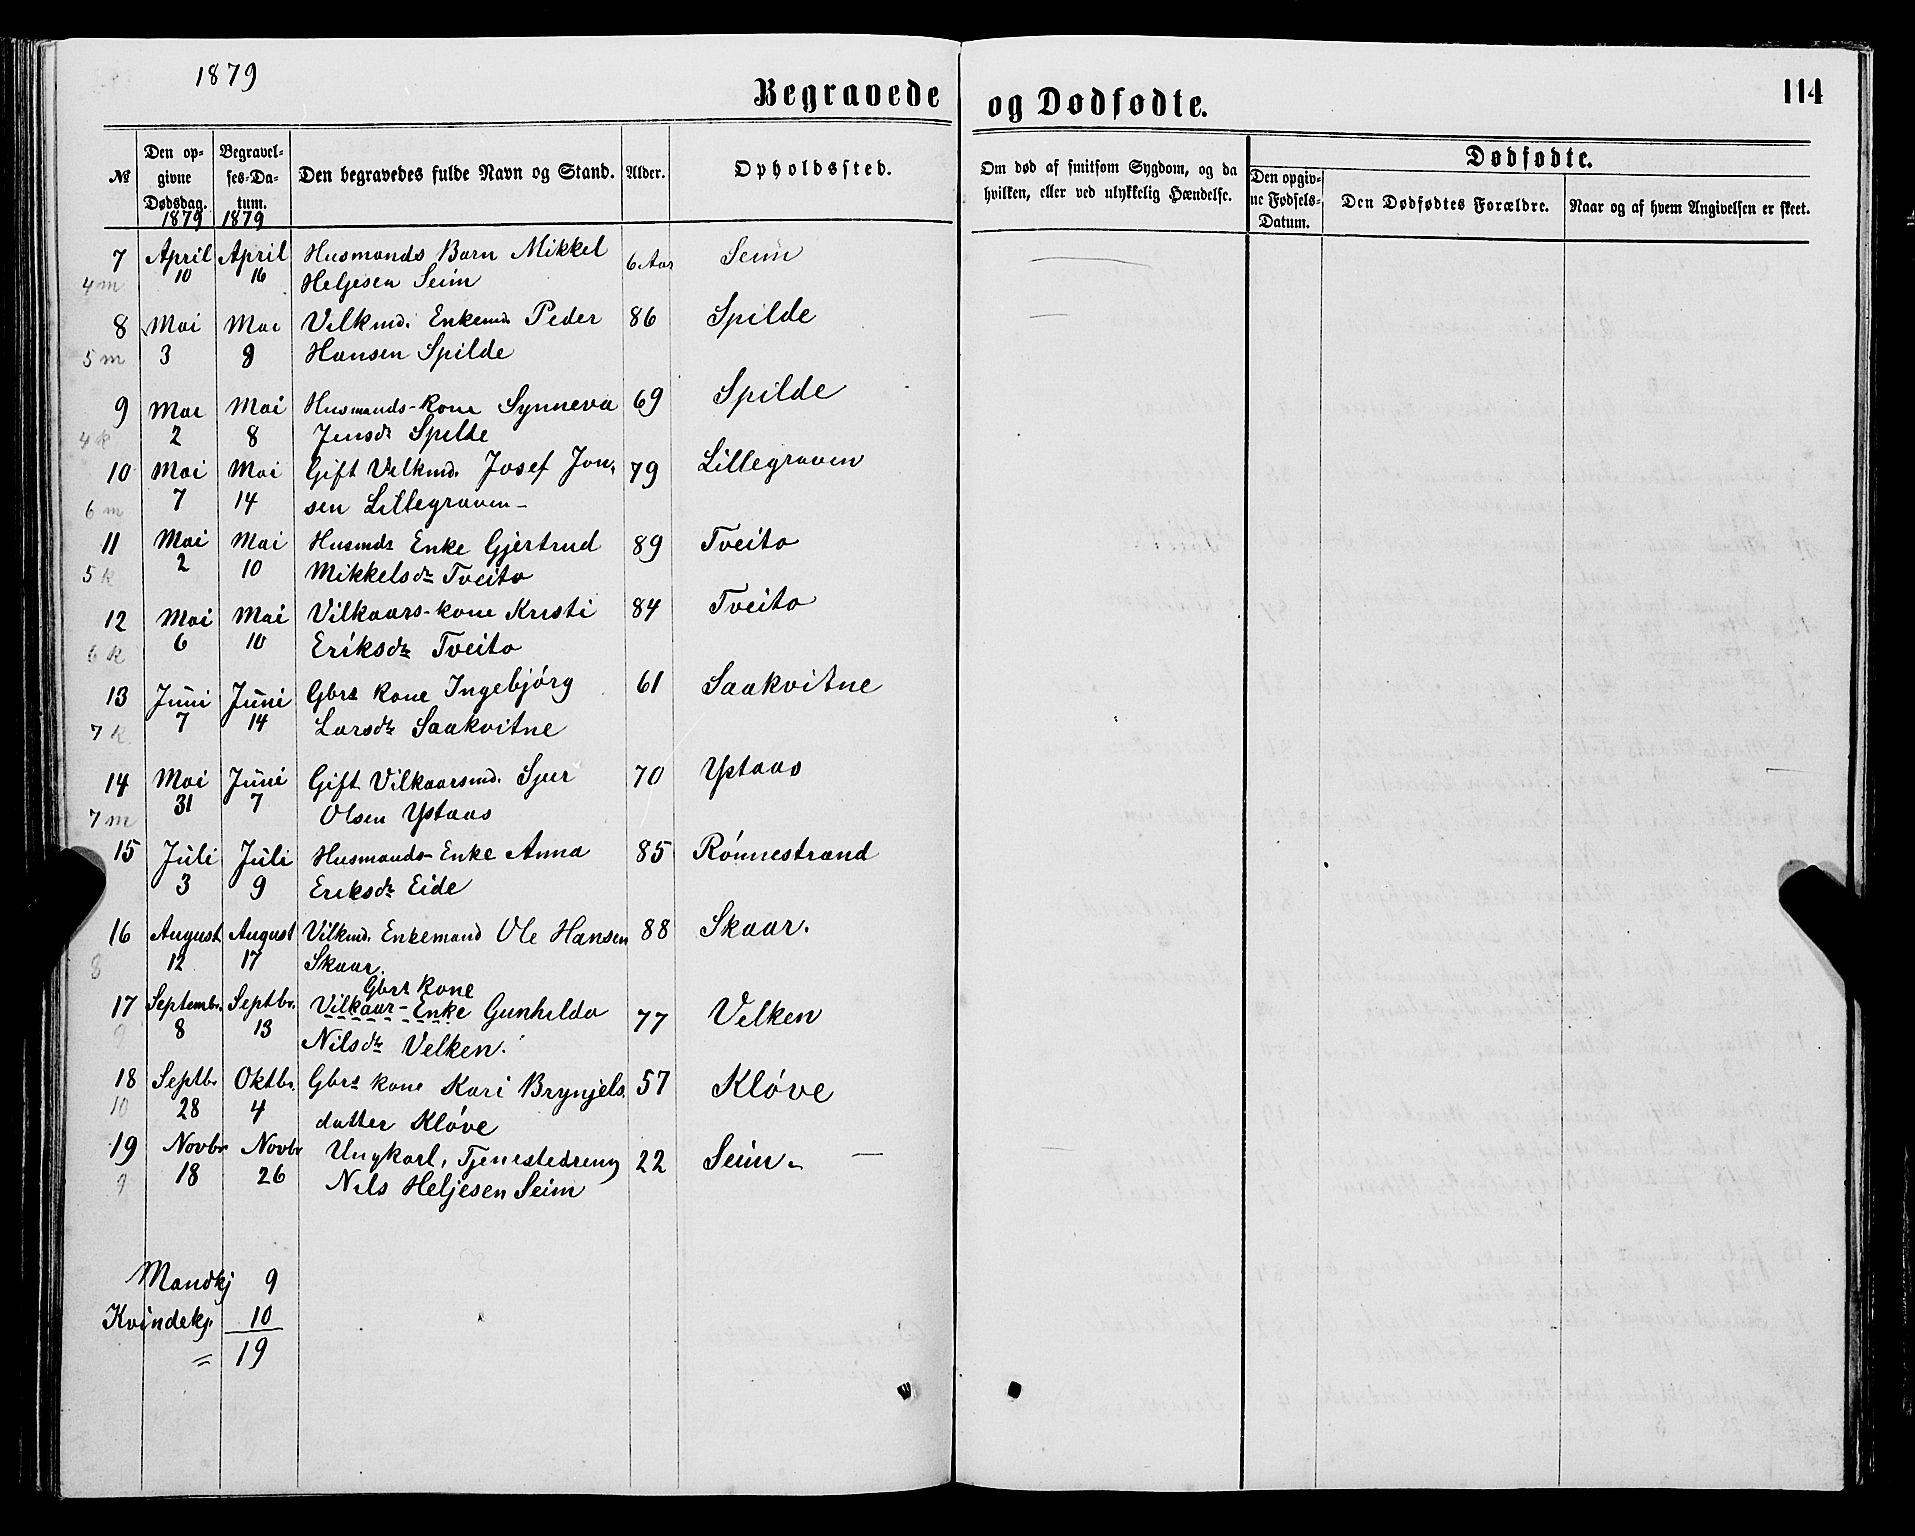 1879
Begravede og Dødfødte.
114
№ Den opgivne Dødsdag. Begravelses-Datum. Den begravedes fulde Navn og Stand. Alder. Opholdssted. Om død af smitsom Sygdom, og da hvilken, eller ved ulykkelig Hændelse. Dødfødte.
Den opgivne Fødsels-Datum. Den Dødfødtes Forældre. Naar og af hvem Angivelsen er skeet.
1879 1879
7 April April Husmands Barn Mikkel 6 Aar Seim
4 m 10 16 Heljesen Seim
8 Mai Mai Vilkmd. Enkemd. Peder 86 Spilde
5 m 3 8 Hansen Spilde
9 Mai Mai Husmands-kone Synneva 69 Spilde
4 k 2 8 Jensdr Spilde
10 Mai Mai Gift Velkmd. Josef Jon- 79 Lillegraven
6 m 7 14 sen Lillegraven-
11 Mai Mai Husmds Enke Gjertrud 89 Tveito
5 k 2 10 Mikkelsdr Tveito
12 Mai Mai Vilkaars-kone Kristi 84 Tveito
6 k 6 10 Eriksdr Tveito
13 Juni Juni Gbrs kone Ingebjörg 61 Saakvitne
7 k 7 14 Larsdr Saakvitne
14 Mai Juni Gift Vilkaarsmd. Sjur 70 Ystaas
7 m 31 7 Olsen Ystaas
15 Juli Juli Husmands-Enke Anna 85 Rönnestrand
3 9 Eriksdr Eide
16 August August Vilkmd. Enkemand Ole Hansen 88 Skaar.
8 12 17 Skaar.
Gbrs kone
17 Septembr. Septbr. Vilkaar-Enke Gunhilda 77 Velken
9 8 13 Nilsdr Velken.
18 Septbr Oktbr. Gbrs kone Kari Brynjels 57 Klöve
10 28 4 datter Klöve
19 Novbr Novbr Ungkarl, Tjenestedreng 22 Seim
9 18 26 Nils Heljesen Seim
Mandkj 9
Kvindekj. 10
= 19